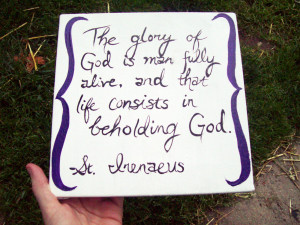 The glory of
God is man fully
alive, and that
life consists in
beholding God.
-St. Irenaeus